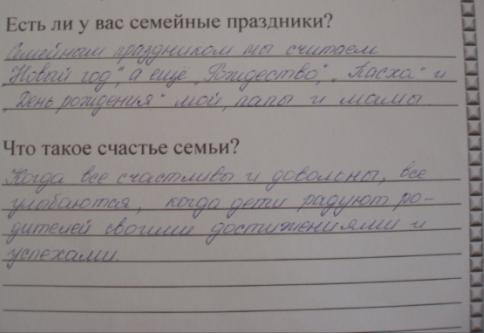 Есть ли у вас семейные праздники?
Семейным праздником мы считаем
„Новый год“, а ещё „Рождество“, „Пасха“ и
„День рождения“ мой, папы и мамы.
Что такое счастье семьи?
Когда все счастливы и довольны, все
улыбаются, когда дети радуют ро-
дителей своими достижениями и
успехами.